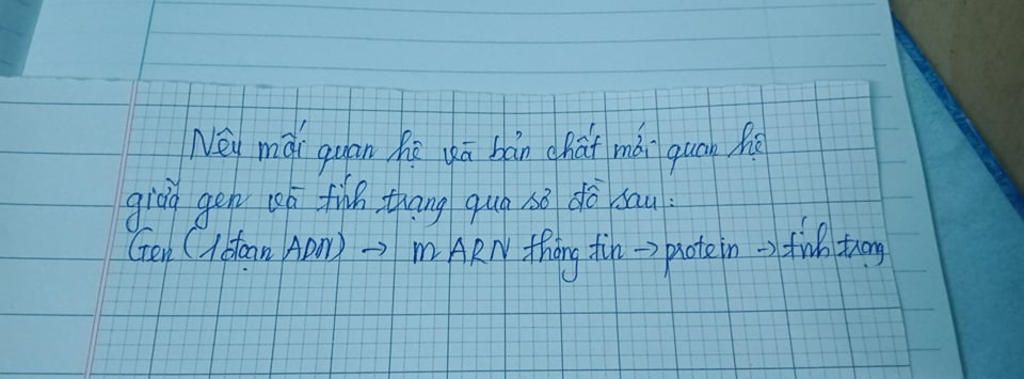 Nêu mối quan hệ và bản chất mối quan hệ
giữa gen và tính trạng qua sơ đồ sau:
Gen (1 đoạn ADN) → mARN thông tin → protein → tính trạng